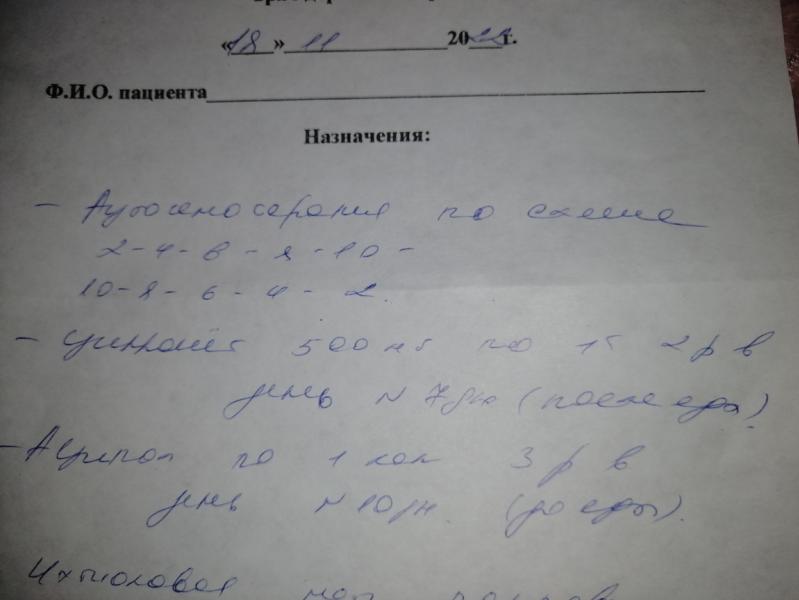 «18» 11 2022 г.
Ф.И.О. пациента
Назначения:
- Аутогемотерапия по схеме
2-4-6-8-10-
10-8-6-4-2.
- Циннат 500 мг по 1т 2 р в
день N 7дн (после еды).
- Аципол по 1 кап 3 р в
день N 10дн. (до еды).
Ихтиоловая